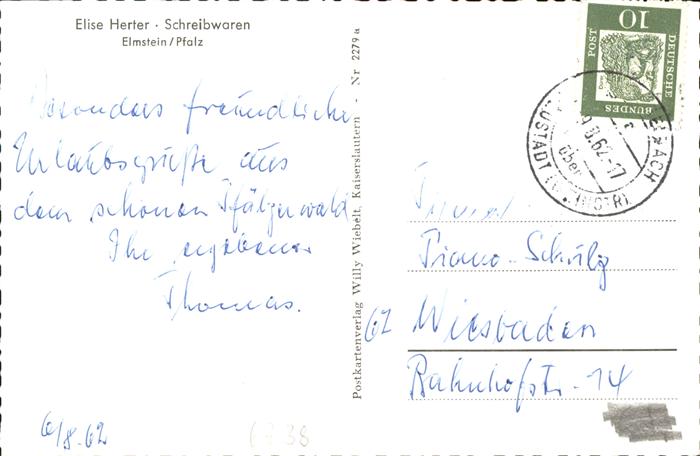 Elise Herter · Schreibwaren
Elmstein/Pfalz
Besonders freundliche
Urlaubsgrüße aus
dem schönen Pfälzerwald
Ihr ergebener
Thomas.
6/8.62
6238
Postkartenverlag Willy Wiebelt, Kaiserslautern - Nr 2279 a
10
POST
DEUTSCHE
BUNDES
62-17
über
NEUSTADT (WEINSTR)
Piano-Schulz
62 Wiesbaden
Bahnhofstr. 14